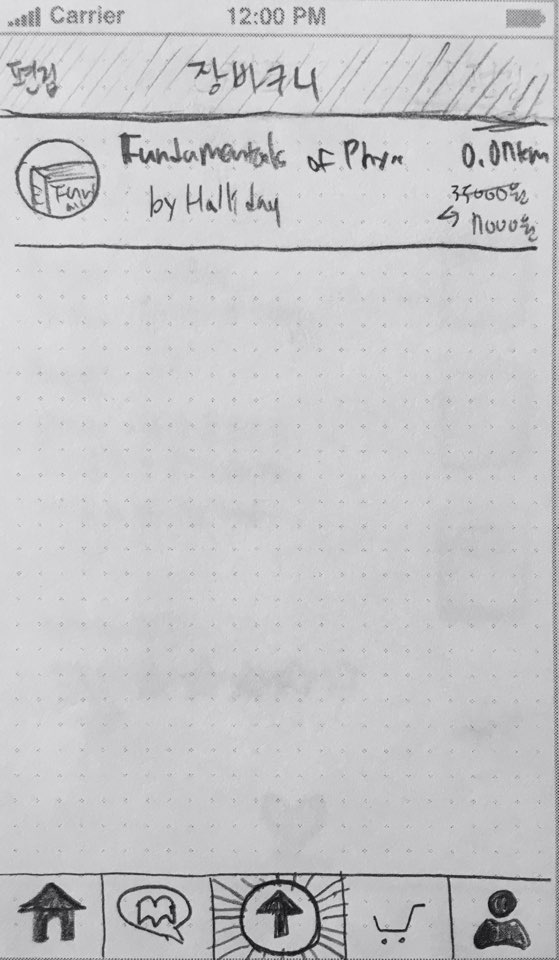 Carrier 12:00 PM
편집 장바구니
Fundamentals of Phy
by Halliday
0.01km
35000원
11000원
Fun